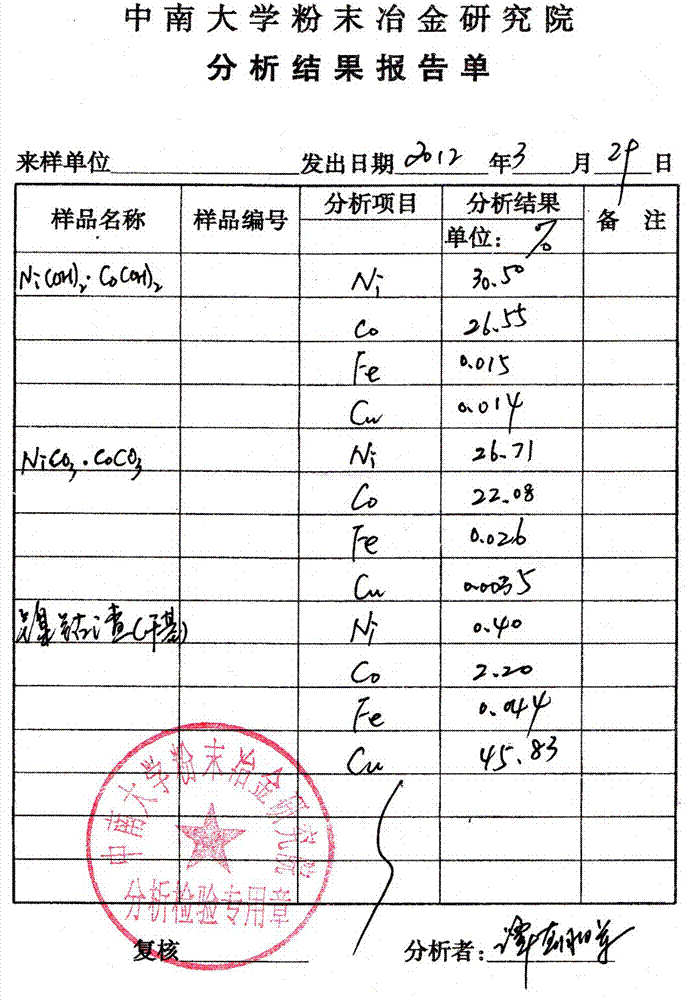 中南大学粉末冶金研究院
分析结果报告单
来样单位 发出日期 2012 年 3 月 29 日
样品名称 样品编号 分析项目 分析结果 备 注
单位: %
Ni(OH)2·Co(OH)2 Ni 30.50
Co 26.55
Fe 0.015
Cu 0.014
NiCO3·CoCO3 Ni 26.71
Co 22.08
Fe 0.026
Cu 0.0035
渣(干基) Ni 0.40
Co 2.20
Fe 0.044
Cu 45.83
中南大学粉末冶金研究院
分析检验专用章
复核 分析者: